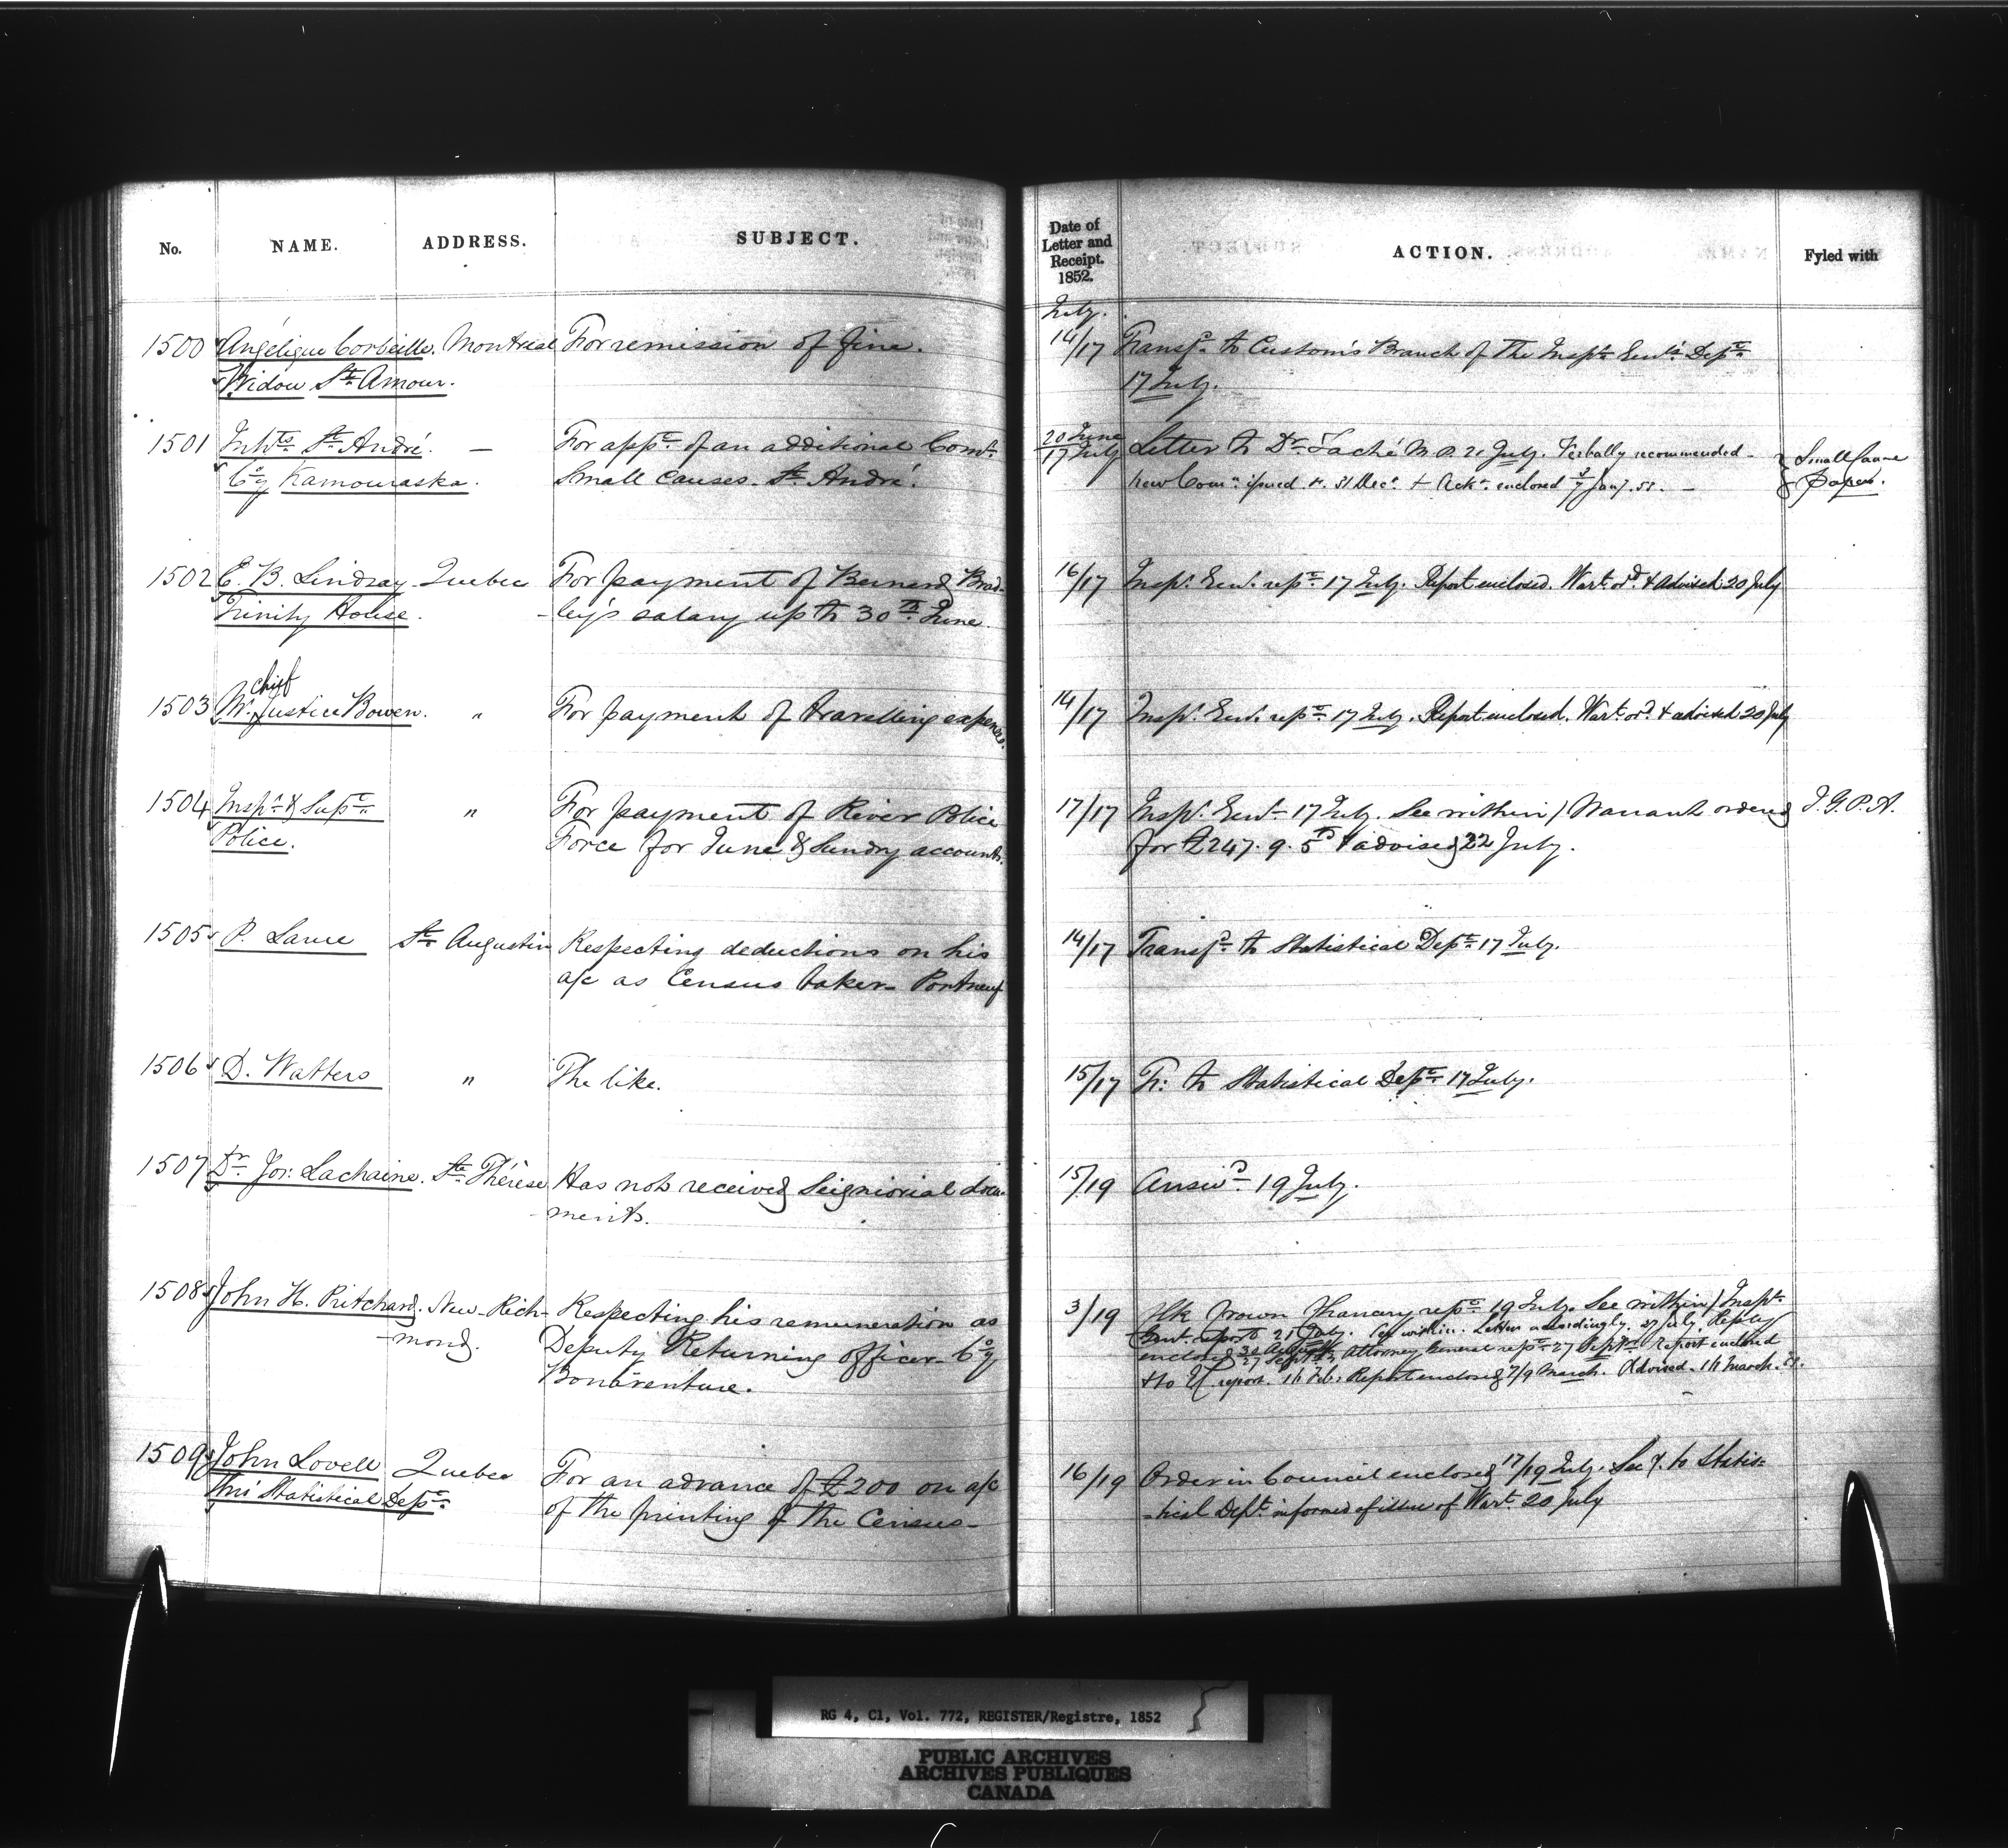 No. NAME. ADDRESS. SUBJECT. Date of Letter and Receipt. 1852. ACTION. Fyled with
July.
1500 Angélique Corbeille. Montreal For remission of fine. 14/17 Transfd. to Customs Branch of the Inspr. Genl's Dept.
Widow St. Amour. 17 July.
1501 Inhts. St. André. — For appt. of an additional Comr. 20 June Letter to Dr. Taché M.P. 21 July. Verbally recommended - Small Cause
Coy Kamouraska. Small Causes. St. André. 17 July New Comn. issued. 31 Decr. + Ackt. enclosed Jany. 53. — Papers.
1502 E. B. Lindsay Quebec For payment of Bernard Brad- 16/17 Inspr. Genl. rept. 17 July. Report enclosed. Wart. ord. & advised 20 July
Trinity House. -ley's salary up to 30th June.
chief
1503 Mr. Justice Bowen. " For payment of travelling expenses. 14/17 Inspr. Genl. rept. 17 July. Report enclosed. Wart. ord. & advised 20 July
1504 Inspr. & Supt. " For payment of River Police 17/17 Inspr. Genl. 17 July. See within / Warrant ordered I. G. P. A.
Police. Force for June & Sundry accounts. for £247. 9. 5 & advised 22 July.
1505 P. Larue St. Augustin Respecting deductions on his 14/17 Transfd. to Statistical Dept. 17 July.
a/c as Census taker - Portneuf
1506 D. Watters " The like. 15/17 Tr: to Statistical Dept. 17 July.
1507 Dr. Jos: Lachaine. Ste. Thérèse Has not received Seigniorial docu- 15/19 Answd. 19 July.
-ments.
1508 John H. Pritchard. New-Rich- Respecting his remuneration as 3/19 Clk Crown Chancery rept. 19 July. See within / Inspr.
-mond. Deputy Returning Officer - Coy Genl. report 21 July. See within. Letter accordingly. 27 July. Reply
Bonaventure. enclosed 30 August Attorney General rept. 27 Septr. Report enclosed
27 Septr. report. Feb. Report enclosed 7/9 March. Advised. 14 March.
1509 John Lovell Quebec For an advance of £200 on a/c 16/19 Order in Council enclosed 17/19 July. See to Statis-
thro' Statistical Dept. of the printing of the Census - -tical Dept. informed of issue of Wart. 20 July
RG 4, C1, Vol. 772, REGISTER/Registre, 1852
PUBLIC ARCHIVES
ARCHIVES PUBLIQUES
CANADA